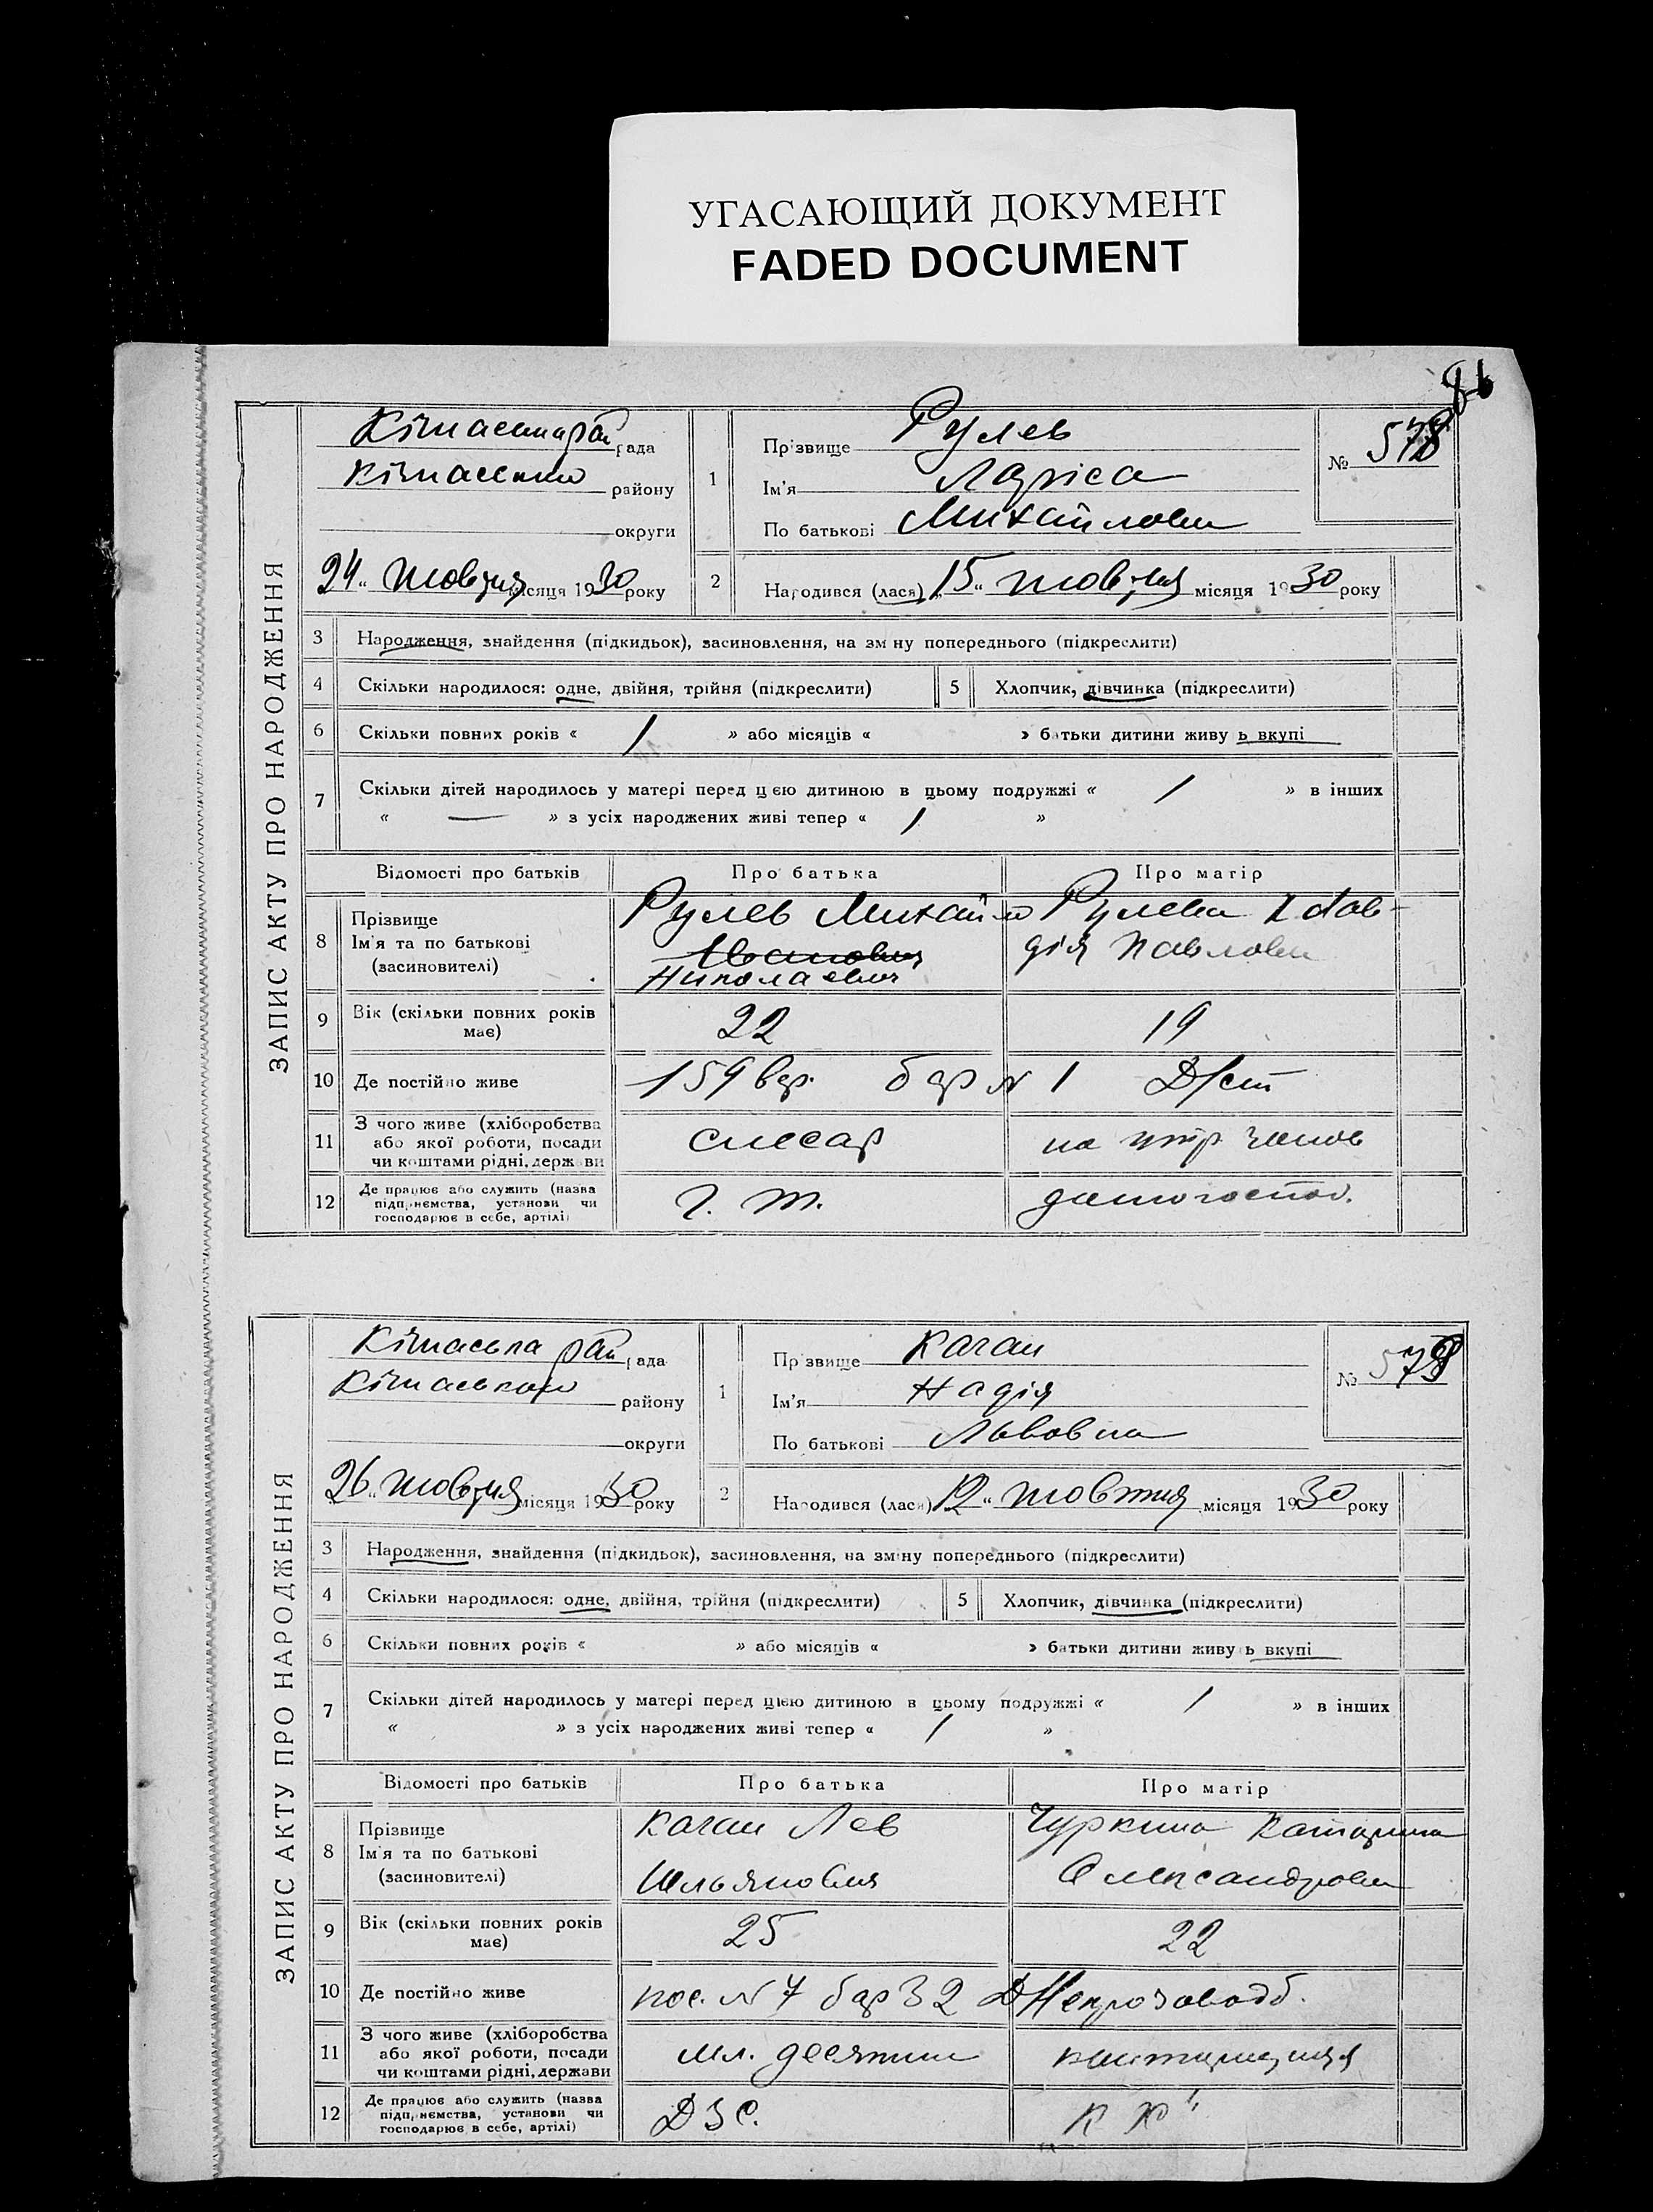 УГАСАЮЩИЙ ДОКУМЕНТ
FADED DOCUMENT
ЗАПИС АКТУ ПРО НАРОДЖЕННЯ
рада
району
округи
24 " жовтня місяця 1930 року
1
Прізвище Рулев
Ім'я Ларіса
По батькові Михайловн
№ 578
2
Народився (лася) „ 15 " жовтня місяця 1930 року
3 Народження, знайдення (підкидьок), засиновлення, на зміну попереднього (підкреслити)
4 Скільки народилося: одне, двійня, трійня (підкреслити)
5 Хлопчик, дівчинка (підкреслити)
6 Скільки повних років « 1 » або місяців « » батьки дитини живуть вкупі
7 Скільки дітей народилось у матері перед цією дитиною в цьому подружжі « 1 » в інших
« — » з усіх народжених живі тепер « 1 »
Відомості про батьків Про батька Про матір
8 Прізвище
Ім'я та по батькові
(засновителі)
Рулев Михайло
Иванович
Николаевич
Рулева Явдо-
дія Павловн
9 Вік (скільки повних років має) 22 19
10 Де постійно живе 159 бар № 1
11 З чого живе (хліборобства
або якої роботи, посади
чи коштами рідні, держави
слесар
на утр
12 Де працює або служить (назва
підприємства, установи чи
господарює в себе, артілі)
домогоспод.
ЗАПИС АКТУ ПРО НАРОДЖЕННЯ
рада
району
округи
26 " жовтня місяця 1930 року
1
Прізвище Каган
Ім'я Надія
По батькові Львовна
№
2
Народився (лася) 12 " жовтня місяця 1930 року
3 Народження, знайдення (підкидьок), засиновлення, на зміну попереднього (підкреслити)
4 Скільки народилося: одне, двійня, трійня (підкреслити)
5 Хлопчик, дівчинка (підкреслити)
6 Скільки повних років « » або місяців « » батьки дитини живуть вкупі
7 Скільки дітей народилось у матері перед цією дитиною в цьому подружжі « 1 » в інших
« » з усіх народжених живі тепер « 1 »
Відомості про батьків Про батька Про матір
8 Прізвище
Ім'я та по батькові
(засиновителі)
Каган Лев
Чуркина Катарина
Олександровн
9 Вік (скільки повних років має) 25 22
10 Де постійно живе пос. № 7 бар 32
11 З чого живе (хліборобства
або якої роботи, посади
чи коштами рідні, держави
мл. десятник
12 Де працює або служить (назва
підприємства, установи чи
господарює в себе, артілі)
ДЗС.